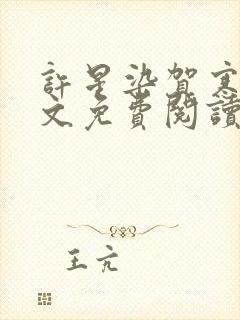 許星染賀寒
文免費閱讀
王亢